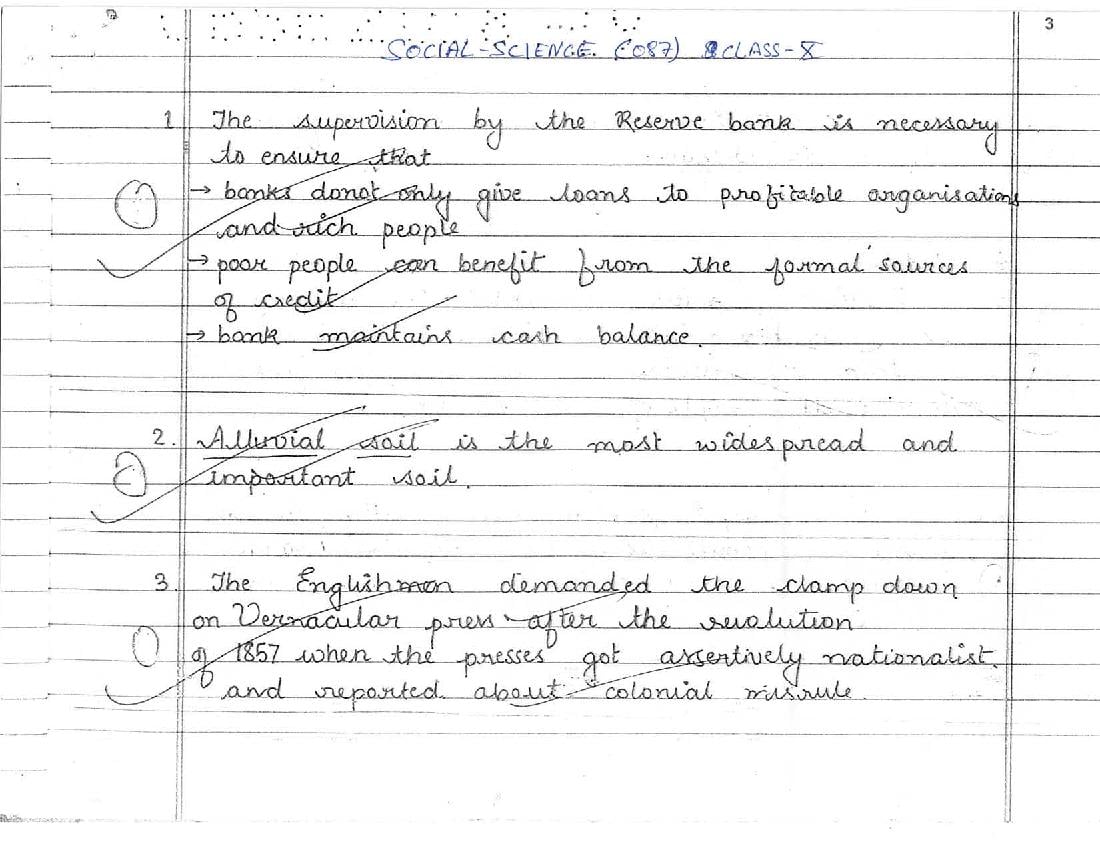 3
SOCIAL-SCIENCE. (087) CLASS-X
1 The supervision by the Reserve bank is necessary
to ensure that
→ banks donot only give loans to profitable organisations
and rich people
→ poor people can benefit from the formal sources
of credit
→ bank maintains cash balance.
2. Alluvial soil is the most widespread and
important soil.
3. The Englishmen demanded the clamp down
on Vernacular press after the revolution
of 1857 when the presses got assertively nationalist
and reported about colonial misrule.